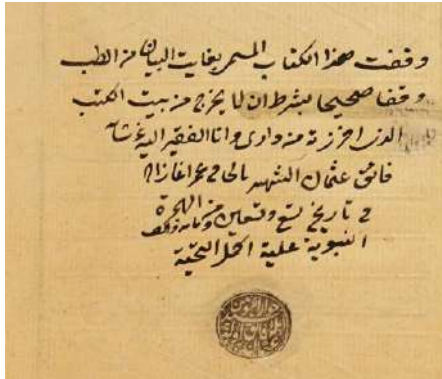 وقفت هذا الكتاب المسمى بغايت البيان من الطب
وقفا صحيحا بشرط ان لا يخرج من بيت الكتب
الذى افرزته من دارى وانا الفقير اليه
فائق عثمان الشهير بالحاجى عمر اغازاده
فى تاريخ تسع وتسعين ومايه والف من الهجرة
النبوية عليه اكمل التحية